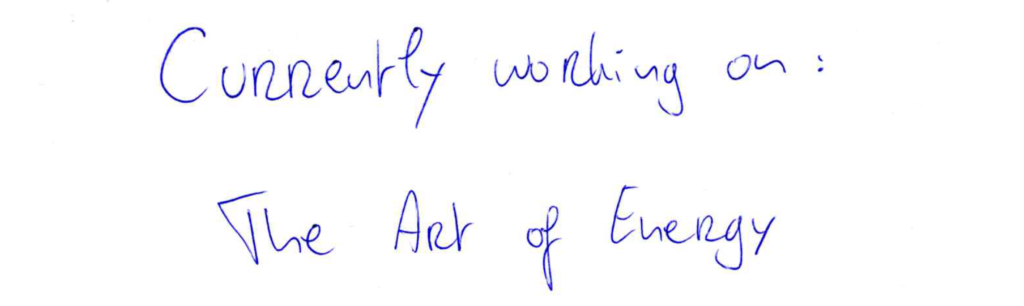 Currently working on:
The Art of Energy